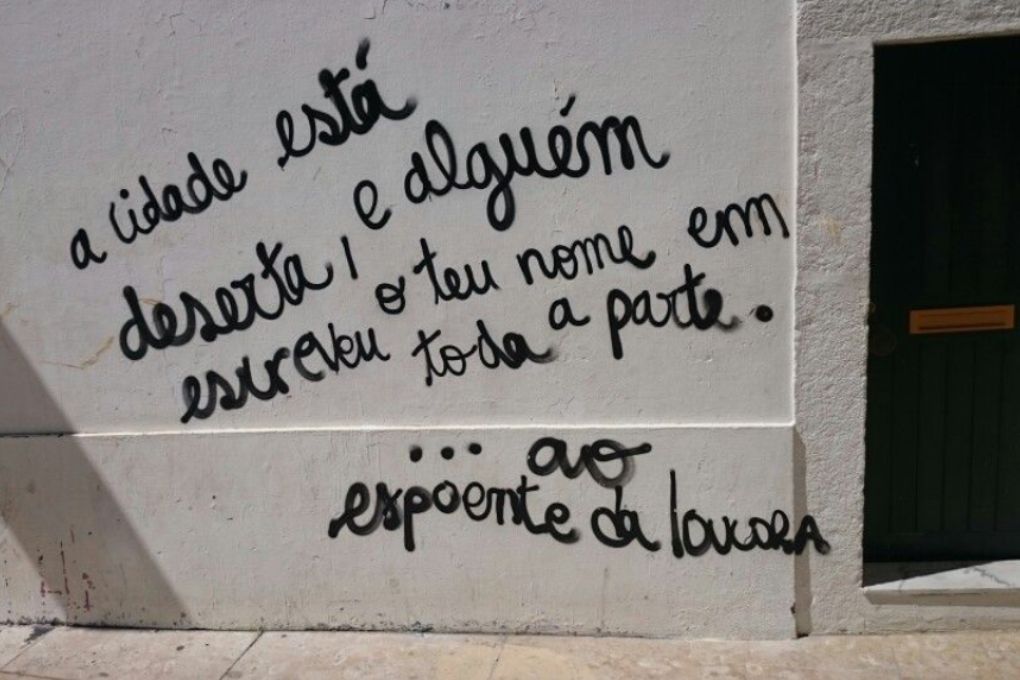 a cidade está
deserta, e alguém
escreveu o teu nome em
toda a parte.
... ao
espoente da loucora